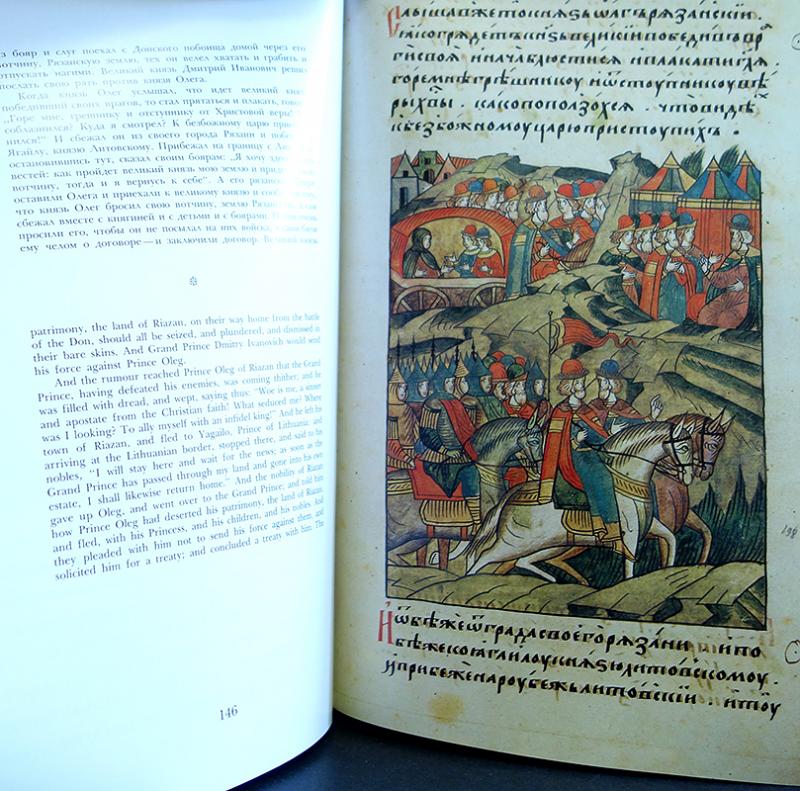 из бояр и слуг поехал с Донского побоища домой через его
вотчину, Рязанскую землю, тех он велел хватать и грабить и
отпускать нагими. Великий князь Дмитрий Иванович решил
послать свою рать против князя Олега.
Когда князь Олег услышал, что идет великий князь,
победивший своих врагов, то стал прятаться и плакать,
„Горе мне, грешнику и отступнику от Христовой веры!
соблазнился! Куда я смотрел? К безбожному царю
нился!" И сбежал он из своего города Рязани и
Ягайлу, князю Литовскому. Прибежал на границу с
остановившись тут, сказал своим боярам: „Я хочу
вестей: как пройдет великий князь мою землю и
вотчину, тогда и я вернусь к себе". А его
оставили Олега и приехали к великому князю и
что князь Олег бросил свою вотчину, землю
сбежал вместе с княгиней и с детьми и с боярами.
просили его, чтобы он не посылал на них войска,
ему челом о договоре — и заключили договор. Великий князь
patrimony, the land of Riazan, on their way home from the battle
of the Don, should all be seized, and plundered, and dismissed in
their bare skins. And Grand Prince Dmitry Ivanovich would send
his force against Prince Oleg.
And the rumour reached Prince Oleg of Riazan that the Grand
Prince, having defeated his enemies, was coming thither; and he
was filled with dread, and wept, saying thus: "Woe is me, a sinner
and apostate from the Christian faith! What seduced me? Where
was I looking? To ally myself with an infidel king!" And he left his
town of Riazan, and fled to Yagailo, Prince of Lithuania; and
arriving at the Lithuanian border, stopped there, and said to his
nobles, "I will stay here and wait for the news; as soon as the
Grand Prince has passed through my land and gone into his own
estate, I shall likewise return home." And the nobility of Riazan
gave up Oleg, and went over to the Grand Prince; and told him
how Prince Oleg had deserted his patrimony, the land of Riazan,
and fled, with his Princess, and his children, and his nobles. And
they pleaded with him not to send his force against them, and
solicited him for a treaty; and concluded a treaty with him. The
146
Слышавжетокнѧзьѡлгърѧзанскїи
ꙗкогрѧдетъкнѧзьвеликїипобедивъвра
гисвоѧ иначаблюстисѧ иплакатиглѧ
горемнѣгрѣшникоу иѡтстоупникоувѣ
рыхв҃ы. какопоползохсѧ. чтовидѣ
къбезбожномоуцарюпристоупихъ.
Иѿбѣжеѿградасвоегорѧзани ипо
бѣжекоꙗгаилоукнѧзюлитовскомоу.
иприбеженароубежълитовскїи. итоу